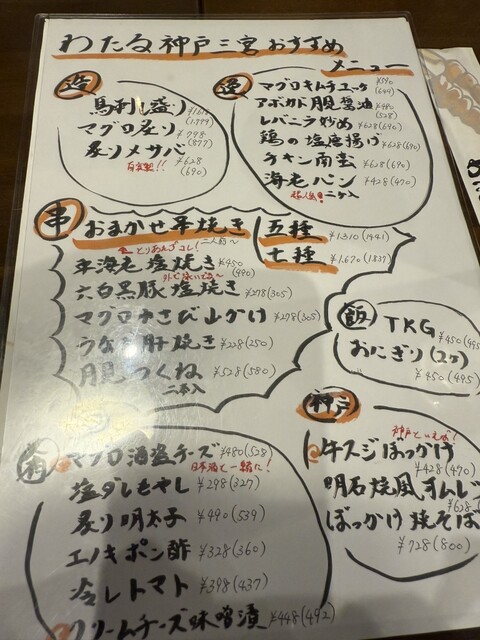 わたる神戸三宮おすすめ
メニュー
造
馬刺し(盛り)
(1.779)
マグロ造り ¥798
(877)
炙りメサバ ¥628
自家製!! (690)
逸
マグロキムチユッケ ¥590
(649)
アボカド月見醤油 ¥480
(528)
レバニラ炒め ¥628(690)
鶏の塩唐揚げ ¥628(690)
チキン南蛮 ¥628(690)
海老パン ¥428(470)
二ケ入
串
おまかせ串焼き
二人前〜
五種 ¥1.310(1441)
七種 ¥1.670(1.837)
とりあえずコレ!
車海老塩焼き ¥450
(490)
六白黒豚塩焼き ¥278(305)
マグロわさび山かけ ¥278(305)
うなぎ肝焼き ¥228(250)
月見つくね ¥528(580)
二本入
飯
TKG ¥450(495
おにぎり(2ケ)
¥450(495)
神戸
神戸といえば!
牛スジぼっかけ
¥428(470)
明石焼風オムレツ
¥628
ぼっかけ焼そば
¥728(800)
マグロ酒盗チーズ ¥480(528
日本酒と一緒に!
塩ダレもやし ¥298(327)
炙り明太子 ¥490(539)
エノキポン酢 ¥328(360)
冷しトマト ¥398(437)
クリームチーズ味噌漬 ¥448(492)